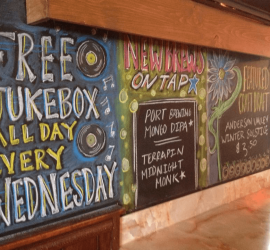 FREE
JUKEBOX
ALL DAY
EVERY
WEDNESDAY
NEW BREWS
ON TAP
PORT BREWING
MONGO DIPA
TERRAPIN
MIDNIGHT
MONK
FEATURED
CRAFT DRAFT
ANDERSON VALLEY
WINTER SOLSTICE
$3.50